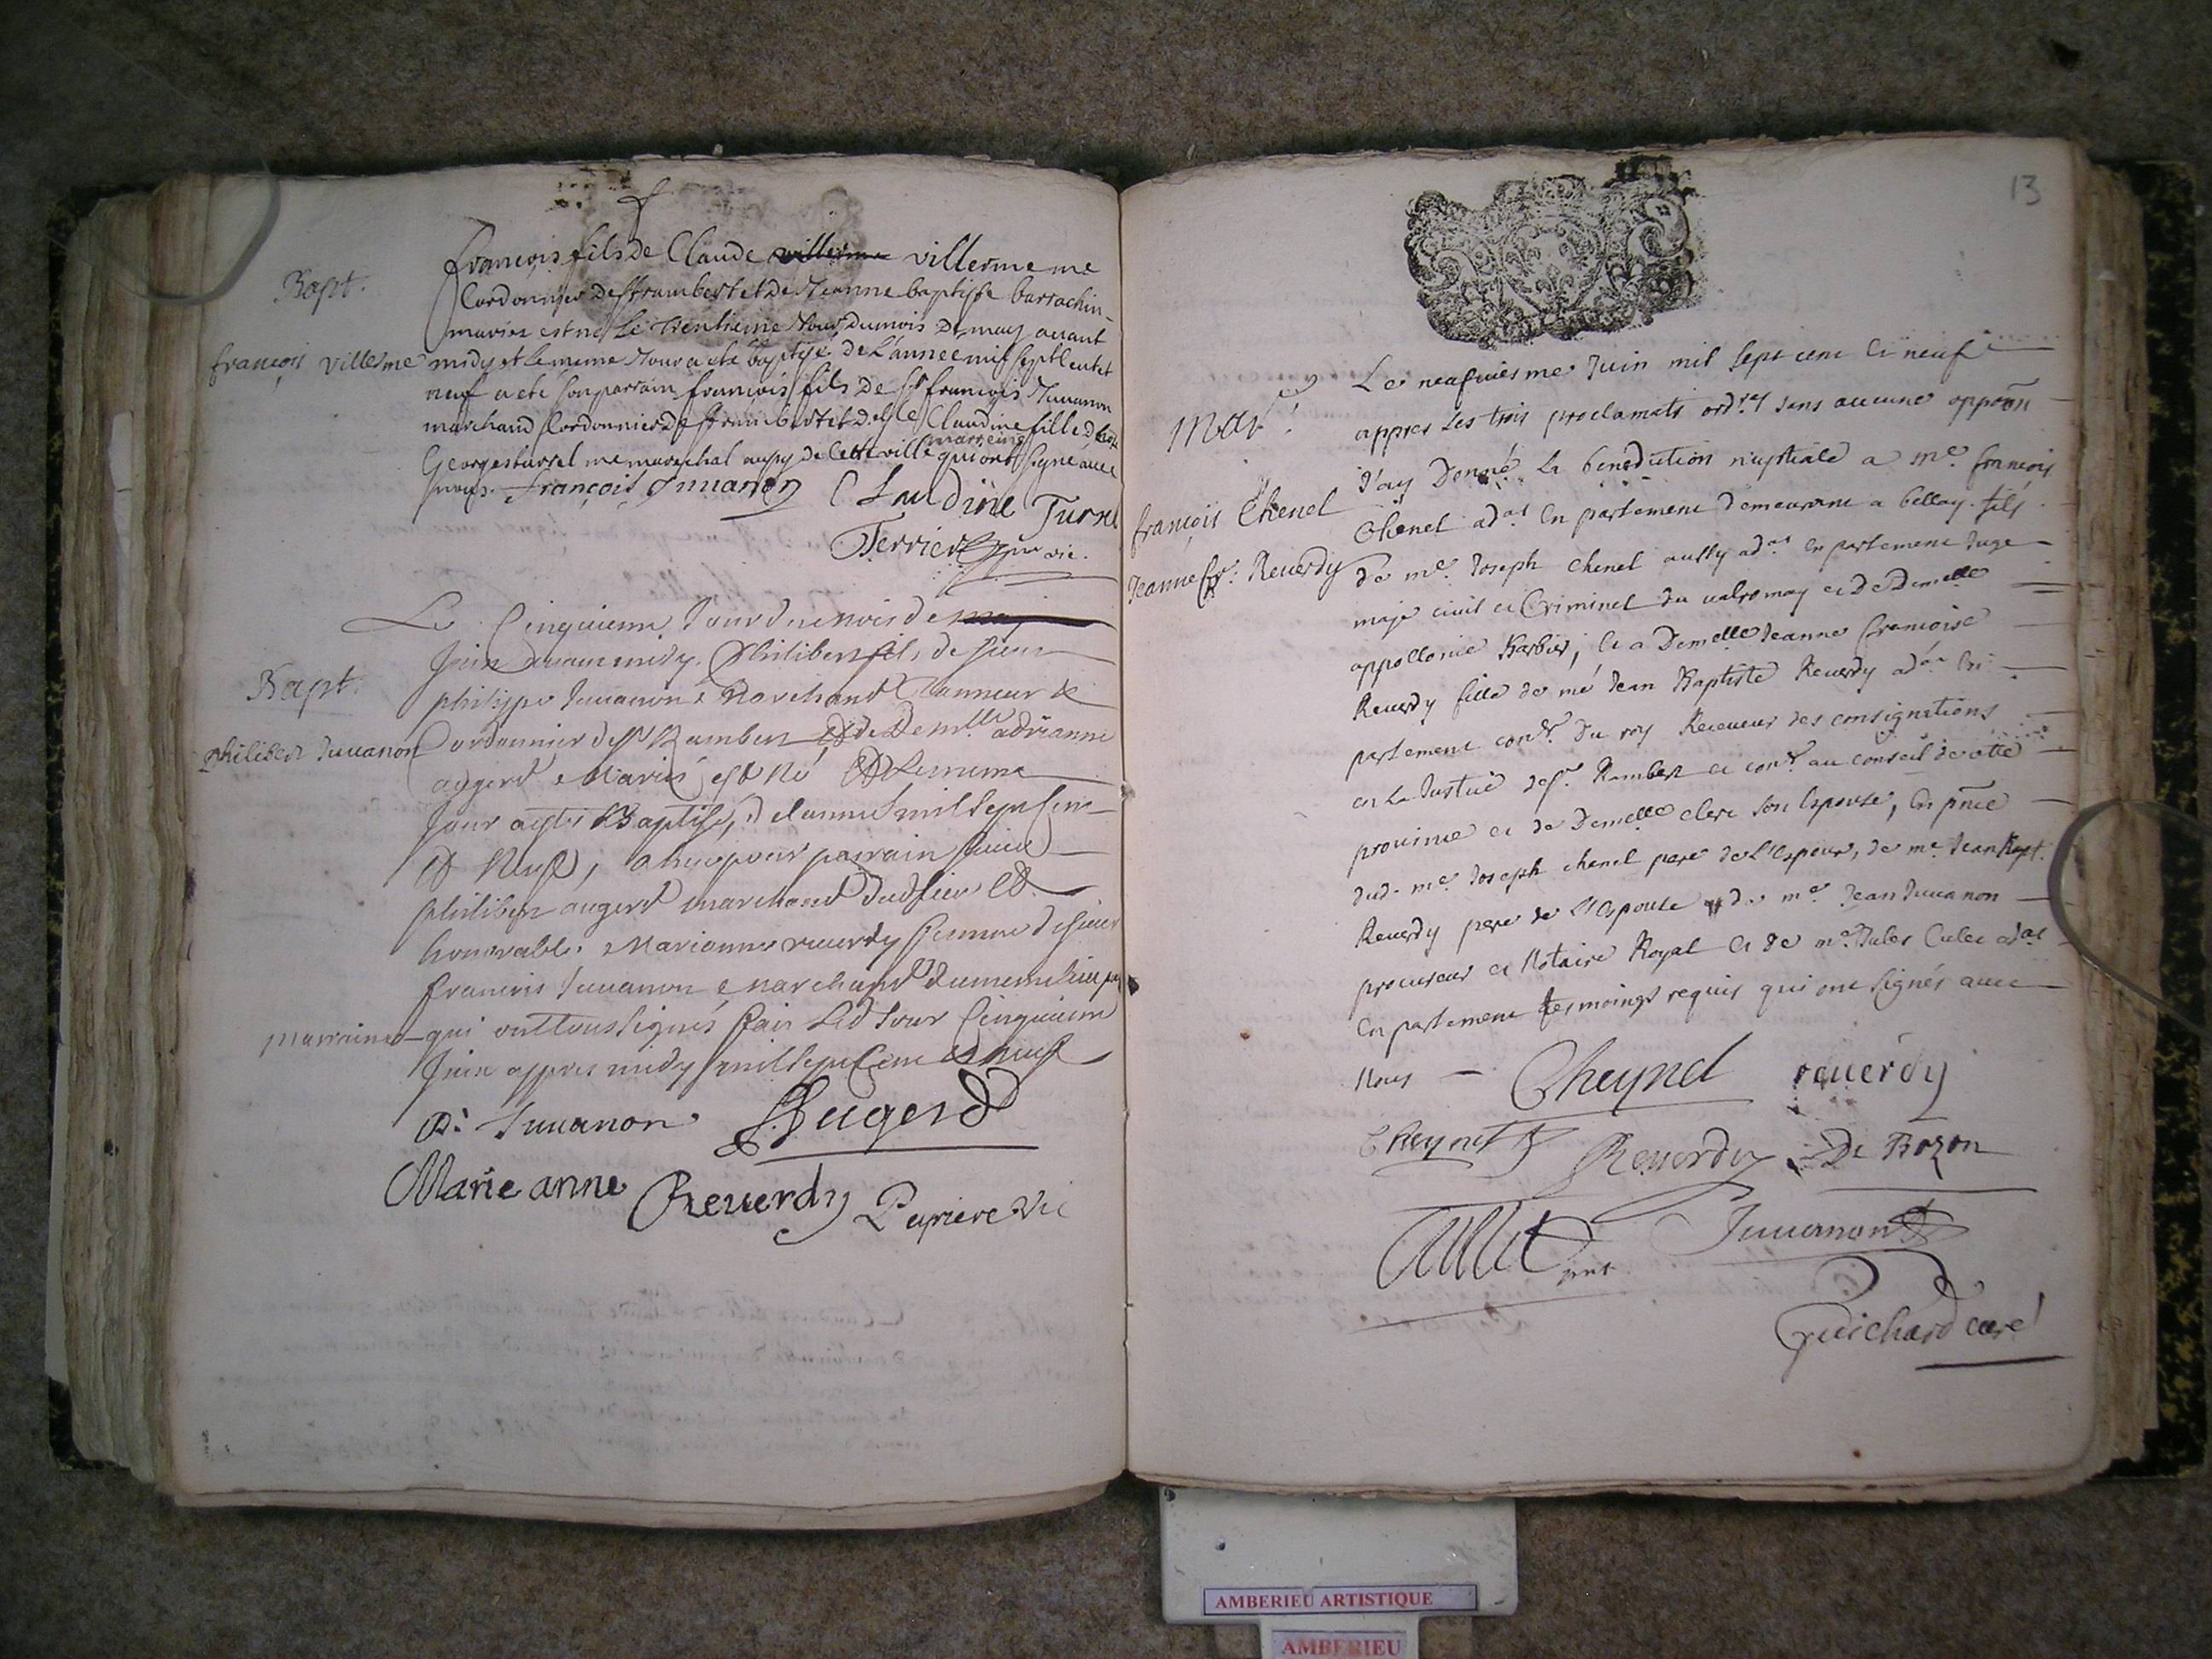 Bapt.
françois villerme
françois fils de Claude villerme villerme me
Cordonnier de st rambert et de Jeanne baptiste barrachin
mariez est né le trentieme Jour du mois de may auant
midy et le meme Jour a eté baptisé de l'annee mil sept cent et
neuf a eté son parrain françois fils de sr françois Juuanon
marchand Cordonnier de st rambert et Claudine fille d'hon
marreine
George turrel me marechal aussy de cette ville qui ont signé auec
nous. françois Juuanon Claudine Turrel
Terrier vic.
Bapt.
philibert Juuanon
Le Cinquieme Jour du mois de may
Juin auant midy. Philibert fils de sieur
philippe Juuanon Marchand Tanneur et
Cordonnier de st Rambert et de Demlle adrianne
augerd Mariés est né et le meme
Jour a eté Baptisé, de l'année mil sept Cent
et Neuf, a heu pour parrain sieur
philibert augerd marchand dud lieu et
honorable Marianne reuerdy femme de sieur
françois Juuanon Marchand du meme lieu
marraine qui ont tous signés fait led Jour Cinquieme
Juin appres midy mil sept Cent et neuf
P. Juuanon Augerd
Marie anne Reuerdy Vic
13
Mar.
françois Chenel
Jeanne fr. Reuerdy
Le neufuiesme Juin mil sept cent et neuf
appres les trois proclamats ordres sans aucune oppoōn
J'ay Donné la benediction nuptiale a me. françois
Chenel adat En parlement demeurant a bellay. fils
de me. Joseph chenel aussy adat en parlement Juge
maje ciuil et Criminel du valromay et de Demelle
appollonie Barbier, et a Demelle Jeanne françoise
Reuerdy fille de mé Jean Baptiste Reuerdy adat En
parlement conr. Du roy Receueur des consignations
en la Justice de st Rambert et conr. au conseil de cette
prouince et de Demelle clerc son Espouse, En pn̄ce
dud. me. Joseph chenel pere de L'Espoux, de me. Jean Bapt.
Reuerdy pere de L'Espouse de me. Jean Juuanon
procureur et Notaire Royal et de me. Culet adat
En parlement tesmoings requis qui ont signés auec
Nous Cheynel reuerdy
Cheynel Reuerdy De Bozon
Cullet Juuanon
Guichard curé
AMBERIEU ARTISTIQUE
AMBERIEU